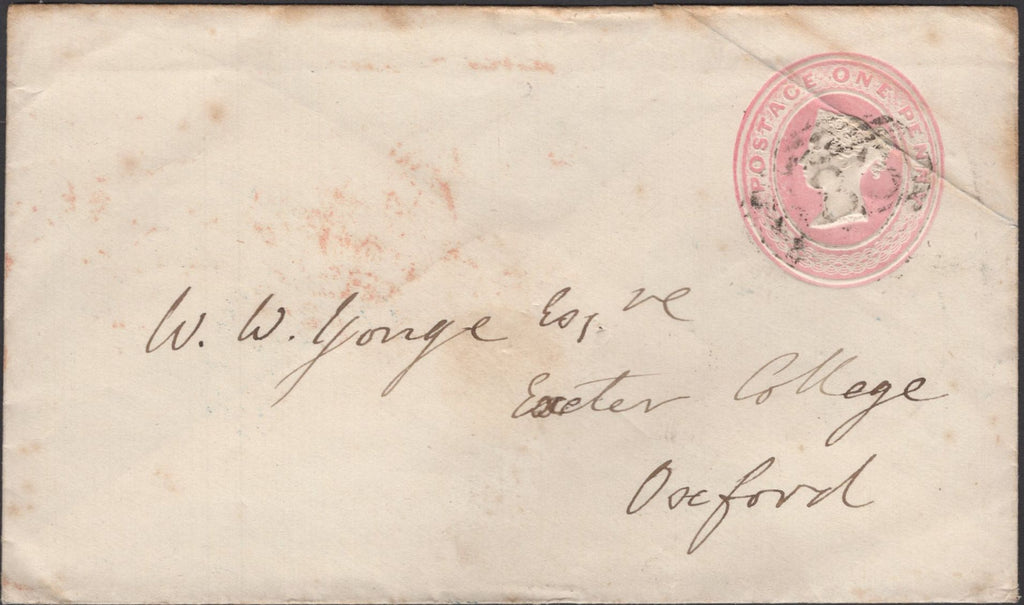 POSTAGE ONE PENNY
W. W. Yonge Esq.re
Exeter College
Oxford